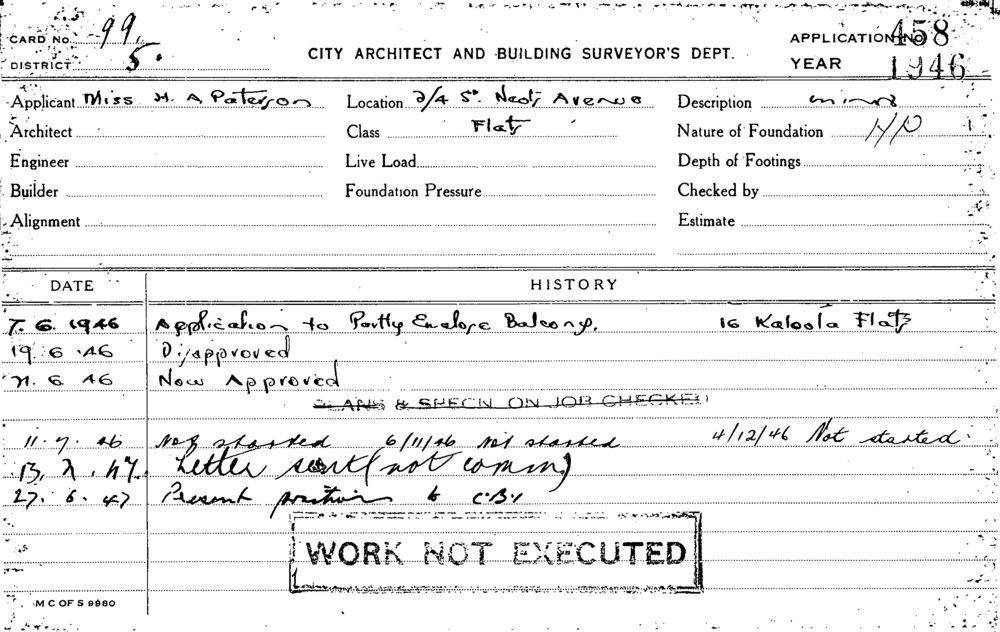 CARD NO. 99. CITY ARCHITECT AND BUILDING SURVEYOR'S DEPT. APPLICATION NO 458
DISTRICT 5. YEAR 1946
Applicant Miss H. A Paterson Location 2/4 St. Neots Avenue Description minor
Architect Class Flats Nature of Foundation
Engineer Live Load Depth of Footings
Builder Foundation Pressure Checked by
Alignment Estimate
DATE HISTORY
7. 6. 1946 Application to Partly Enclose Balcony. 16 Kaloola Flats
19. 6. 46 Disapproved
21. 6 46 Now Approved
PLANS & SPECN ON JOB CHECKED
11. 9. 46 Not started 6/11/46 Not started 4/12/46 Not started.
Letter sent (not comm)
27. 6. 47 Present position to C.B.I
WORK NOT EXECUTED
M C OF S 9980